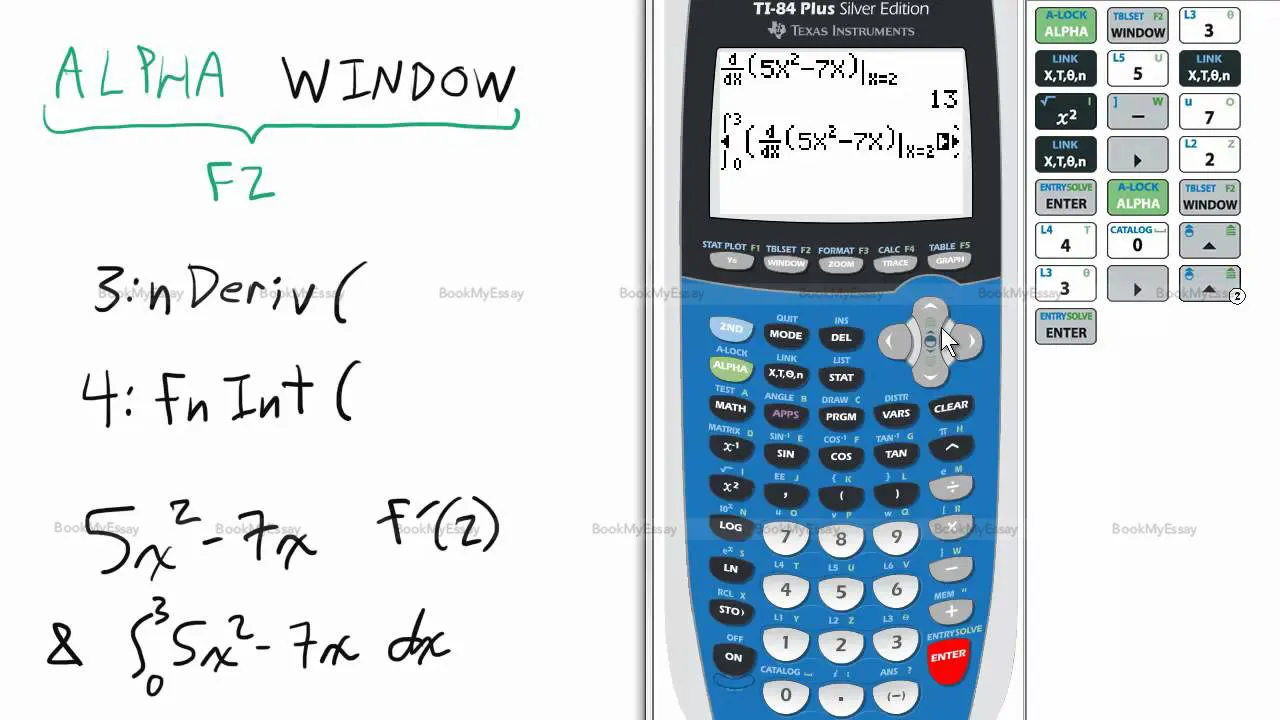 ALPHA WINDOW
F2
3: nDeriv(
4: fnInt(
5x² - 7x f'(2)
& ∫₀³ 5x² - 7x dx
BookMyEssay BookMyEssay BookMyEssay BookMyEssay BookMyEssay BookMyEssay BookMyEssay
BookMyEssay BookMyEssay BookMyEssay BookMyEssay BookMyEssay BookMyEssay
TI-84 Plus Silver Edition
TEXAS INSTRUMENTS
d/dx(5X²-7X)|X=2
13
∫₀³(d/dx(5X²-7X)|X=2
STAT PLOT F1 TBLSET F2 FORMAT F3 CALC F4 TABLE F5
Y= WINDOW ZOOM TRACE GRAPH
QUIT INS
2ND MODE DEL
A-LOCK LINK LIST
ALPHA X,T,θ,n STAT
TEST A ANGLE B DRAW C DISTR
MATH APPS PRGM VARS CLEAR
MATRIX D SIN⁻¹ E COS⁻¹ F TAN⁻¹ G π H
x⁻¹ SIN COS TAN ^
√ I EE J { K } L e M
x² , ( ) ÷
10ˣ N u O v P w Q [ R
LOG 7 8 9 ×
eˣ S L4 T L5 U L6 V ] W
LN 4 5 6 −
RCL X L1 Y L2 Z L3 θ MEM "
STO› 1 2 3 +
OFF CATALOG ⎵ i : ANS ? ENTRY SOLVE
ON 0 . (−) ENTER
A-LOCK TBLSET F2 L3 θ
ALPHA WINDOW 3
LINK L5 U LINK
X,T,θ,n 5 X,T,θ,n
√ I ] W u O
x² − 7
LINK L2 Z
X,T,θ,n 2
ENTRY SOLVE A-LOCK TBLSET F2
ENTER ALPHA WINDOW
L4 T CATALOG ⎵
4 0
L3 θ
3 2
ENTRY SOLVE
ENTER